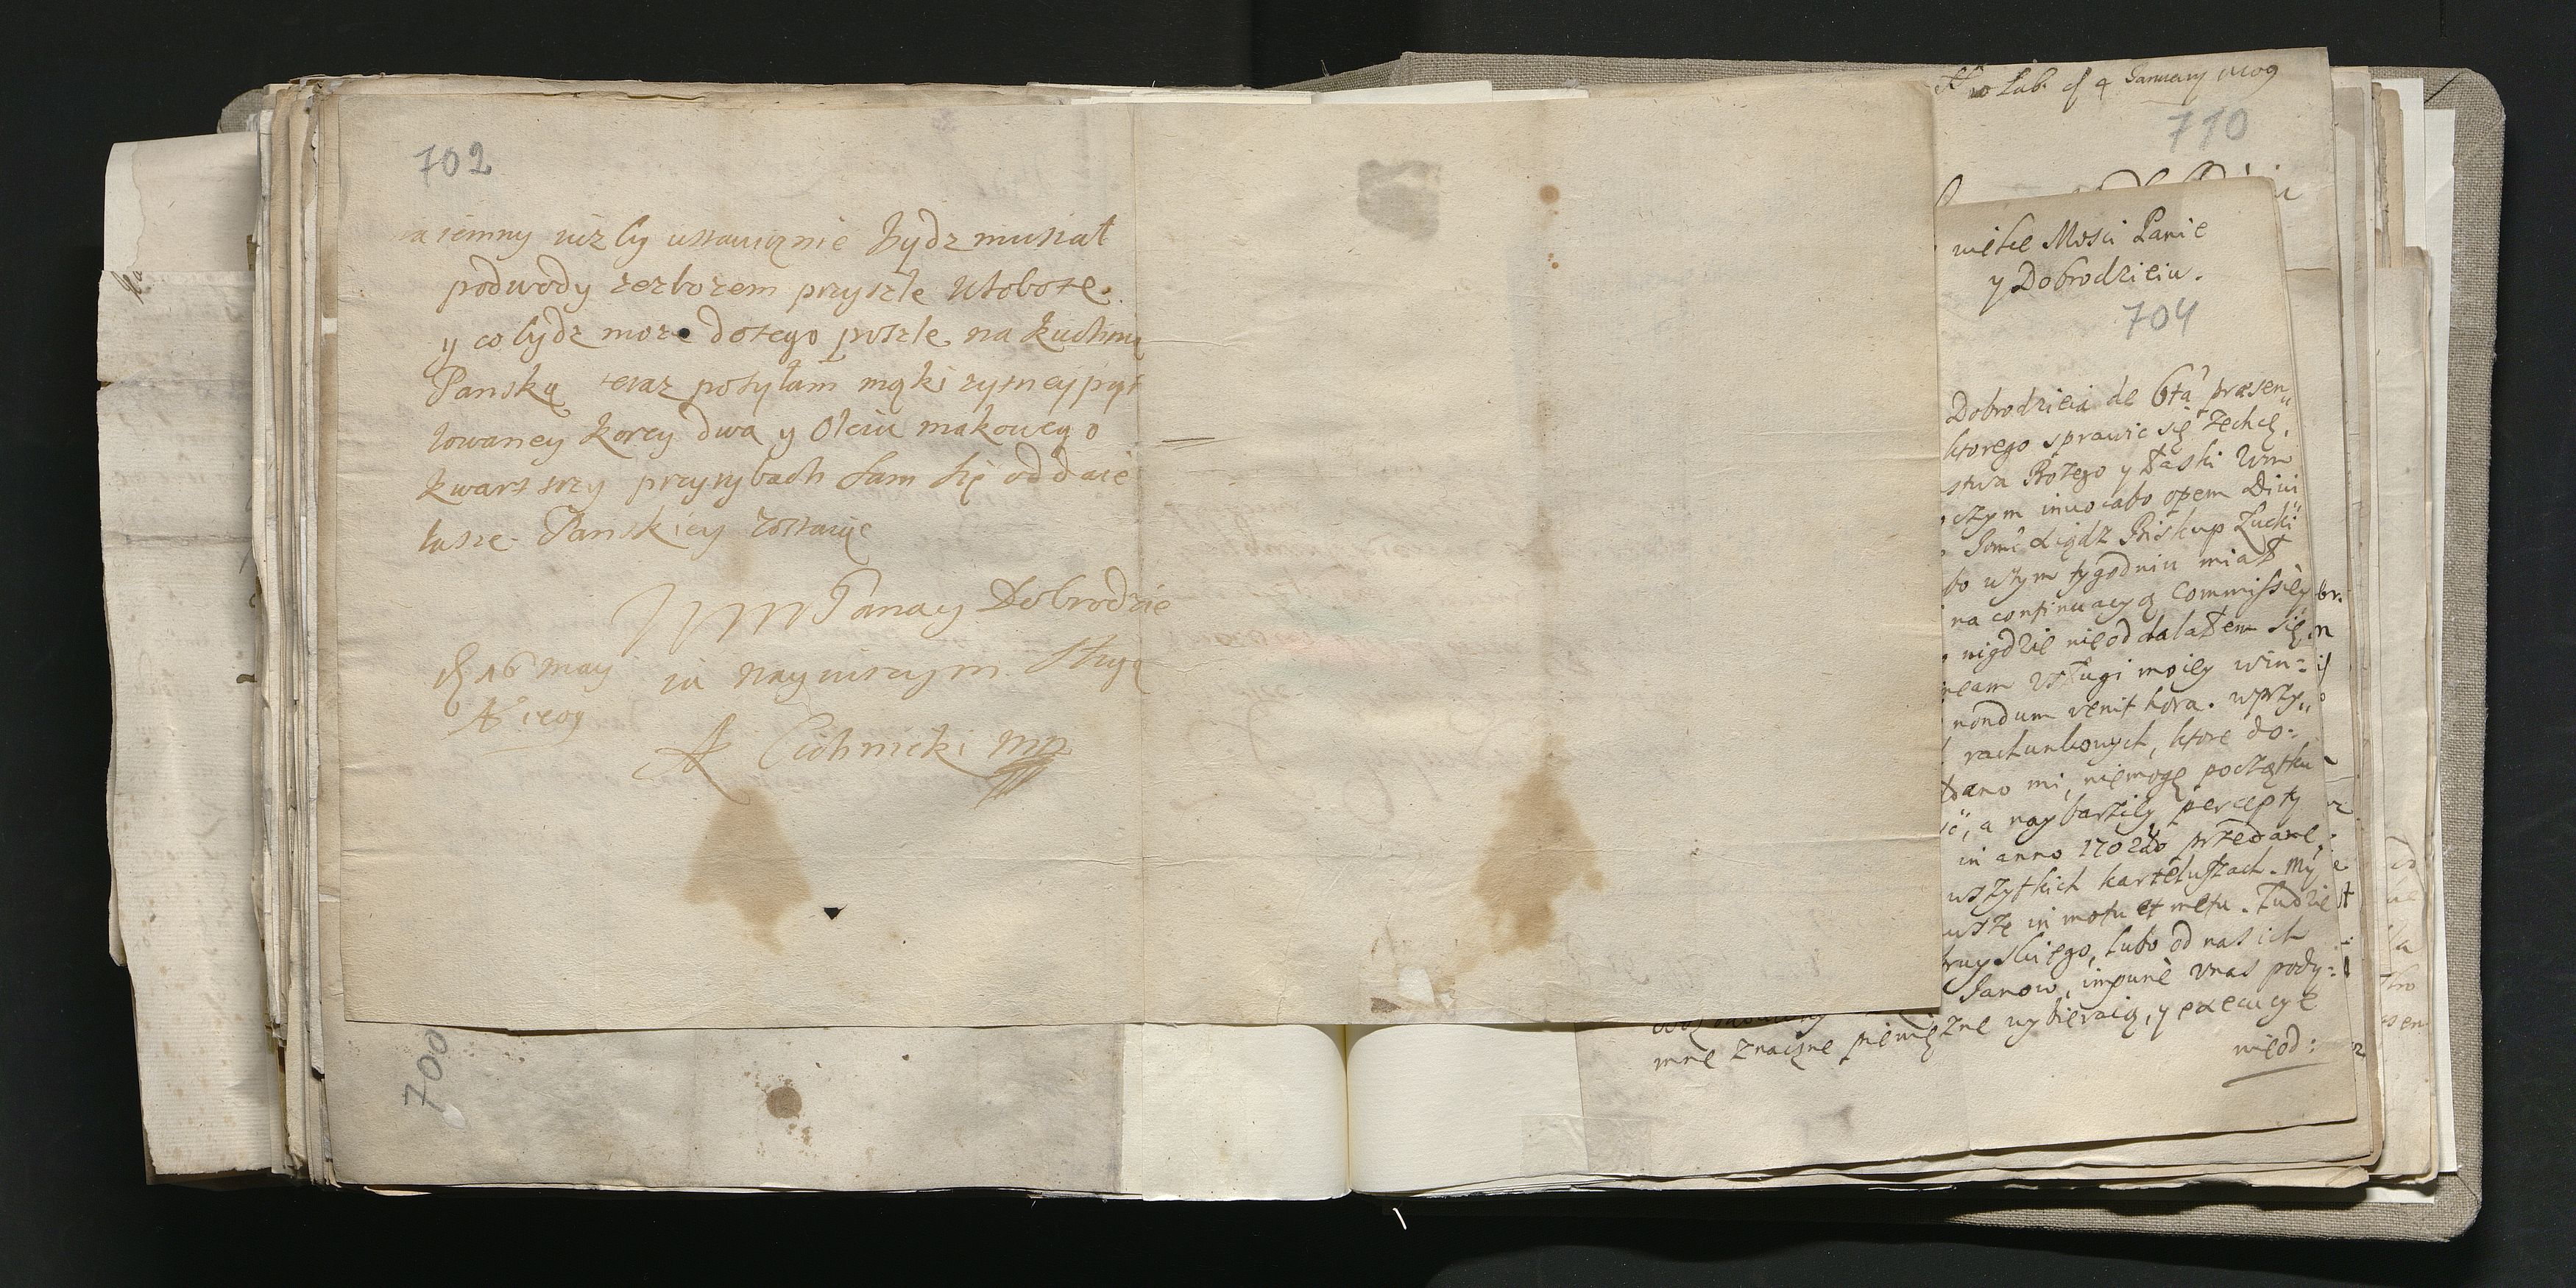 702
iemny iuz by ustawicznie bydz musiał
podwody zezbozem przyszle Wsobotę
y co bydz może dotego poszle na kuchnią
Panską teraz posyłam mąki zytney pyt
lowaney korcy dwa y Oleiu makowego
kwart trzy przyrybach sam się oddaie
łasce Panskiey zostaiąc
WM Panay Dobrodzie
ia naynizszym sługą
16 may
A Cichnicki mp
700
4 January
710
wielce Mosci Panie
y Dobrodzieiu.
704
Dobrodzieia de 6ta præsen„
ktorego sprawic się zechcę,
stwa Bożego y Łaski Wm
czym invocabo opem Divi„
Xiądz Biskup Łucki
bo wtym tygodniu miał
na continuacyą Commissiey
nigdzie nieoddalałem się,
Vsługi moiey win:
nondum venit hora. wprzy„
rachunkowych, ktore do:
dano mi, niemogę początku
a naybarziey percepty
in anno 1702do przedane,
wszytkich kartelustach. My
in motu et metu. Ludzie
lubo od nas ich
Janow, impunè vnas pody:
mne znaczne pieniężne wybieraią, y execucye
nieod: